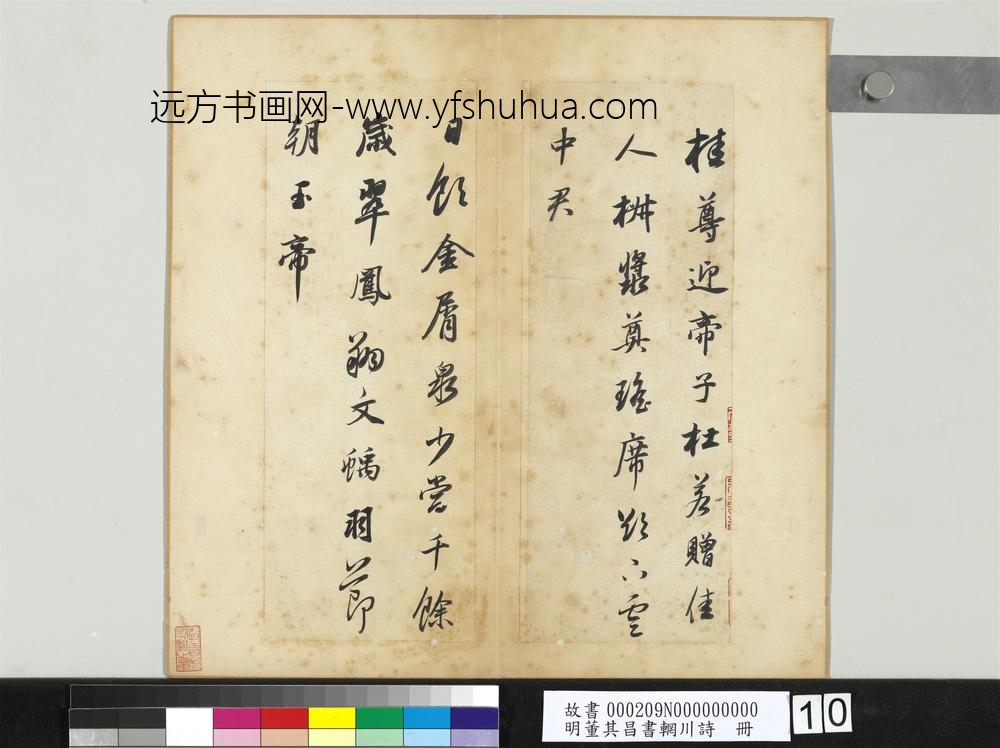 远方书画网-www.yfshuhua.com
桂尊迎帝子杜若贈佳
人椒漿奠瑤席欲下雲
中君
日飲金屑泉少當千餘
歲翠鳳翔文螭羽節
朝玉帝
故書 000209N000000000
明董其昌書輞川詩 冊
10